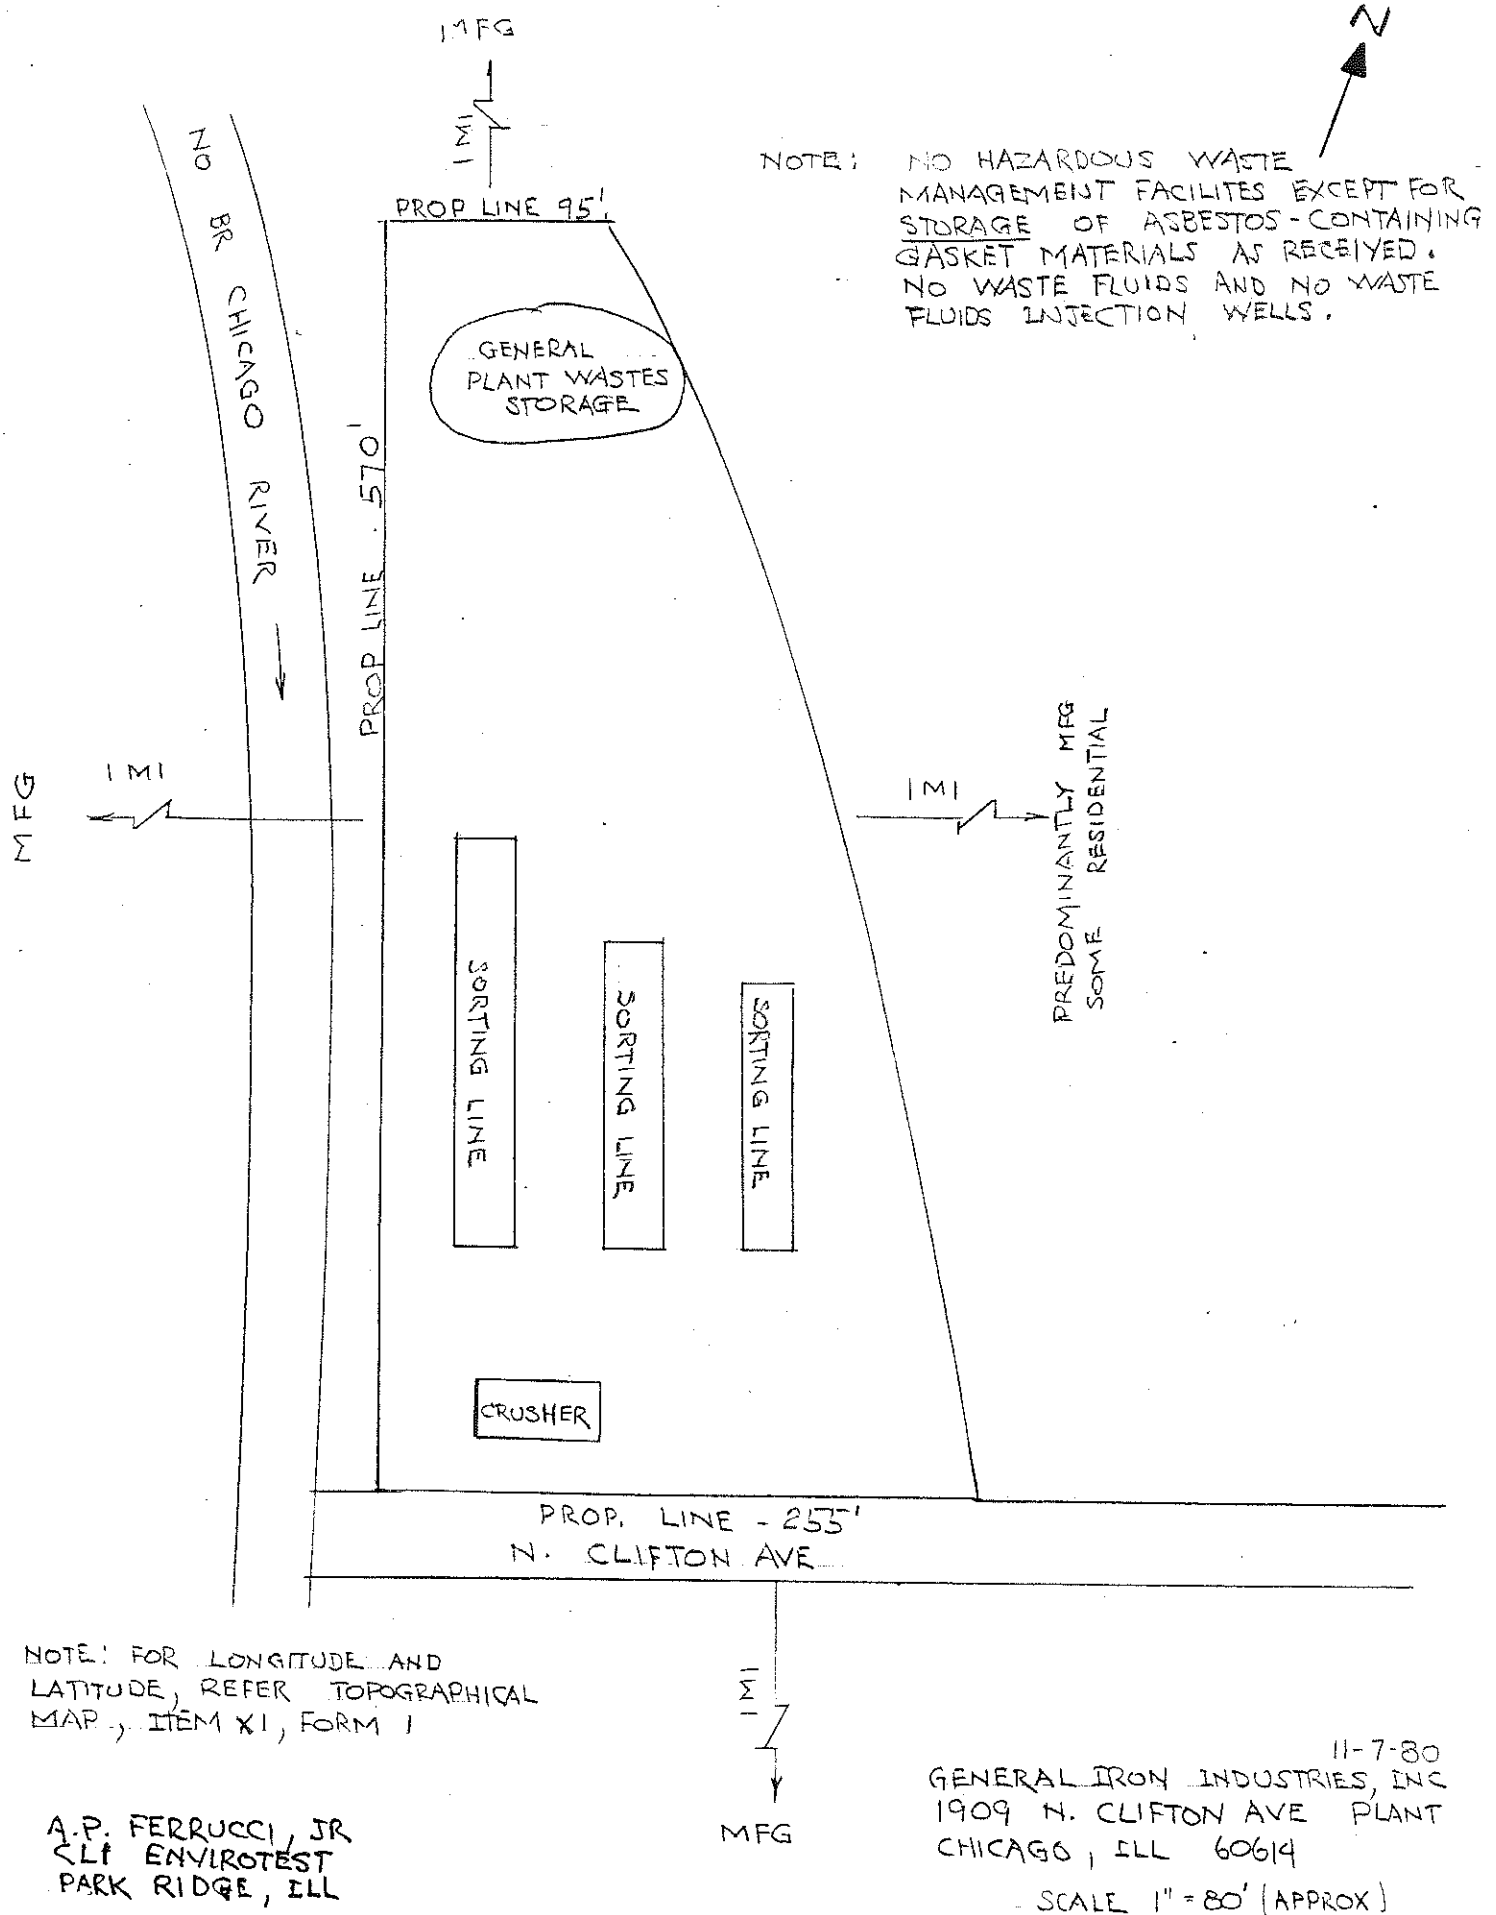 MFG
N
1 MI
NOTE: NO HAZARDOUS WASTE
MANAGEMENT FACILITES EXCEPT FOR
STORAGE OF ASBESTOS-CONTAINING
GASKET MATERIALS AS RECEIVED.
NO WASTE FLUIDS AND NO WASTE
FLUIDS INJECTION WELLS.
PROP LINE 95'
NO BR CHICAGO RIVER
GENERAL
PLANT WASTES
STORAGE
PROP LINE 570'
MFG
1 MI
1 MI
PREDOMINANTLY MFG
SOME RESIDENTIAL
SORTING LINE
SORTING LINE
SORTING LINE
CRUSHER
PROP. LINE - 255'
N. CLIFTON AVE
NOTE: FOR LONGITUDE AND
LATITUDE, REFER TOPOGRAPHICAL
MAP, ITEM XI, FORM 1
1 MI
MFG
11-7-80
GENERAL IRON INDUSTRIES, INC
1909 N. CLIFTON AVE PLANT
CHICAGO, ILL 60614
SCALE 1" = 80' (APPROX)
A.P. FERRUCCI, JR
ENVIROTEST
PARK RIDGE, ILL